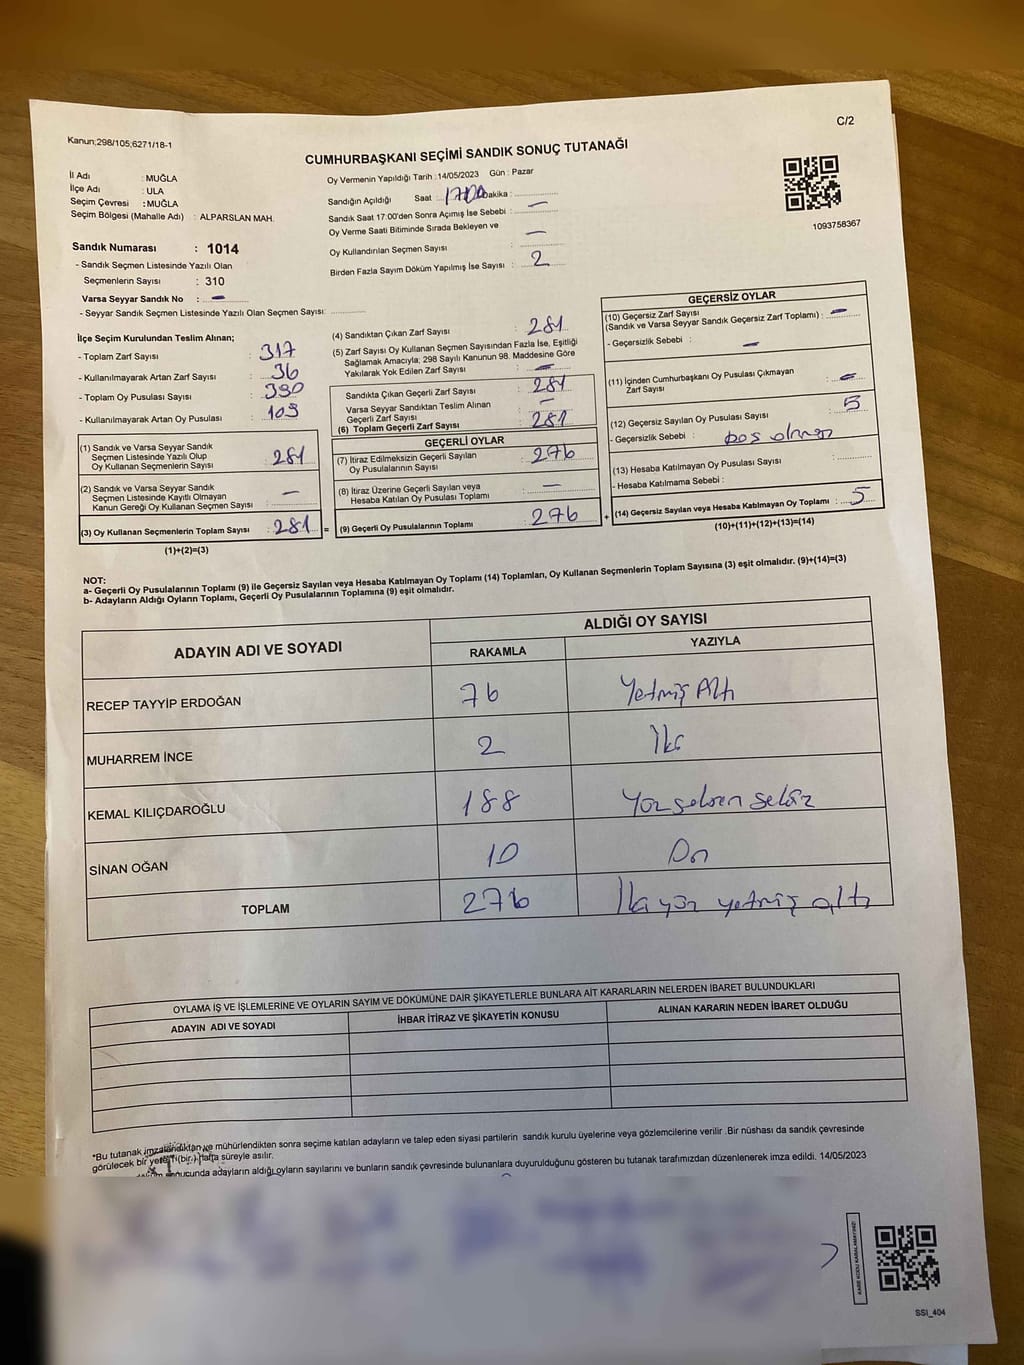 C/2
Kanun;298/105;6271/18-1
CUMHURBAŞKANI SEÇİMİ SANDIK SONUÇ TUTANAĞI
İl Adı : MUĞLA
İlçe Adı : ULA
Seçim Çevresi : MUĞLA
Seçim Bölgesi (Mahalle Adı) : ALPARSLAN MAH.
Sandık Numarası : 1014
- Sandık Seçmen Listesinde Yazılı Olan
Seçmenlerin Sayısı : 310
Varsa Seyyar Sandık No : -
- Seyyar Sandık Seçmen Listesinde Yazılı Olan Seçmen Sayısı:
Oy Vermenin Yapıldığı Tarih :14/05/2023 Gün : Pazar
Sandığın Açıldığı Saat : Dakika :
Sandık Saat 17:00'den Sonra Açımış İse Sebebi : -
Oy Verme Saati Bitiminde Sırada Bekleyen ve
Oy Kullandırılan Seçmen Sayısı : -
Birden Fazla Sayım Döküm Yapılmış İse Sayısı : 2
1093758367
İlçe Seçim Kurulundan Teslim Alınan;
- Toplam Zarf Sayısı : 317
- Kullanılmayarak Artan Zarf Sayısı : 36
- Toplam Oy Pusulası Sayısı :
- Kullanılmayarak Artan Oy Pusulası : 109
(1) Sandık ve Varsa Seyyar Sandık
Seçmen Listesinde Yazılı Olup
Oy Kullanan Seçmenlerin Sayısı : 281
(2) Sandık ve Varsa Seyyar Sandık
Seçmen Listesinde Kayıtlı Olmayan
Kanun Gereği Oy Kullanan Seçmen Sayısı : -
(3) Oy Kullanan Seçmenlerin Toplam Sayısı : 281 =
(1)+(2)=(3)
(4) Sandıktan Çıkan Zarf Sayısı : 281
(5) Zarf Sayısı Oy Kullanan Seçmen Sayısından Fazla İse, Eşitliği
Sağlamak Amacıyla; 298 Sayılı Kanunun 98. Maddesine Göre
Yakılarak Yok Edilen Zarf Sayısı : -
Sandıkta Çıkan Geçerli Zarf Sayısı : 281
Varsa Seyyar Sandıktan Teslim Alınan
Geçerli Zarf Sayısı : -
(6) Toplam Geçerli Zarf Sayısı : 281
GEÇERLİ OYLAR
(7) İtiraz Edilmeksizin Geçerli Sayılan
Oy Pusulalarının Sayısı : 276
(8) İtiraz Üzerine Geçerli Sayılan veya
Hesaba Katılan Oy Pusulası Toplamı : -
(9) Geçerli Oy Pusulalarının Toplamı : 276 +
GEÇERSİZ OYLAR
(10) Geçersiz Zarf Sayısı
(Sandık ve Varsa Seyyar Sandık Geçersiz Zarf Toplamı) : -
- Geçersizlik Sebebi : -
(11) İçinden Cumhurbaşkanı Oy Pusulası Çıkmayan
Zarf Sayısı : -
(12) Geçersiz Sayılan Oy Pusulası Sayısı : 5
- Geçersizlik Sebebi : boş olması
(13) Hesaba Katılmayan Oy Pusulası Sayısı :
- Hesaba Katılmama Sebebi :
(14) Geçersiz Sayılan veya Hesaba Katılmayan Oy Toplamı : 5
(10)+(11)+(12)+(13)=(14)
NOT:
a- Geçerli Oy Pusulalarının Toplamı (9) ile Geçersiz Sayılan veya Hesaba Katılmayan Oy Toplamı (14) Toplamları, Oy Kullanan Seçmenlerin Toplam Sayısına (3) eşit olmalıdır. (9)+(14)=(3)
b- Adayların Aldığı Oyların Toplamı, Geçerli Oy Pusulalarının Toplamına (9) eşit olmalıdır.
ADAYIN ADI VE SOYADI
ALDIĞI OY SAYISI
RAKAMLA YAZIYLA
RECEP TAYYİP ERDOĞAN 76 Yetmiş Altı
MUHARREM İNCE 2 İki
KEMAL KILIÇDAROĞLU 188 Yüz seksen sekiz
SİNAN OĞAN 10 On
TOPLAM 276 İki yüz yetmiş altı
OYLAMA İŞ VE İŞLEMLERİNE VE OYLARIN SAYIM VE DÖKÜMÜNE DAİR ŞİKAYETLERLE BUNLARA AİT KARARLARIN NELERDEN İBARET BULUNDUKLARI
ADAYIN ADI VE SOYADI İHBAR İTİRAZ VE ŞİKAYETİN KONUSU ALINAN KARARIN NEDEN İBARET OLDUĞU
*Bu tutanak imzalandıktan ve mühürlendikten sonra seçime katılan adayların ve talep eden siyasi partilerin sandık kurulu üyelerine veya gözlemcilerine verilir .Bir nüshası da sandık çevresinde
görülecek bir yere 1(bir) hafta süreyle asılır.
adayların aldığı oyların sayılarını ve bunların sandık çevresinde bulunanlara duyurulduğunu gösteren bu tutanak tarafımızdan düzenlenerek imza edildi. 14/05/2023
KARE KODU KARALAMAYINIZ!
SSI_404